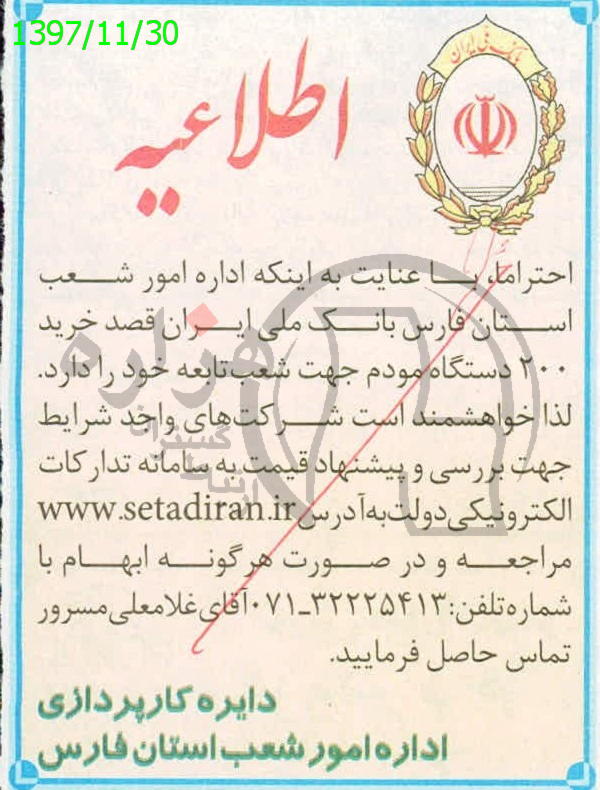 1397/11/30
بانک ملی ایران
اطلاعیه
احتراما، با عنایت به اینکه اداره امور شعب
استان فارس بانک ملی ایران قصد خرید
۲۰۰ دستگاه مودم جهت شعب تابعه خود را دارد.
لذا خواهشمند است شرکت‌های واجد شرایط
جهت بررسی و پیشنهاد قیمت به سامانه تدارکات
الکترونیکی دولت به آدرس www.setadiran.ir
مراجعه و در صورت هرگونه ابهام با
شماره تلفن: ۳۲۲۲۵۴۱۳-۰۷۱ آقای غلامعلی مسرور
تماس حاصل فرمایید.
دایره کارپردازی
اداره امور شعب استان فارس
هزاره